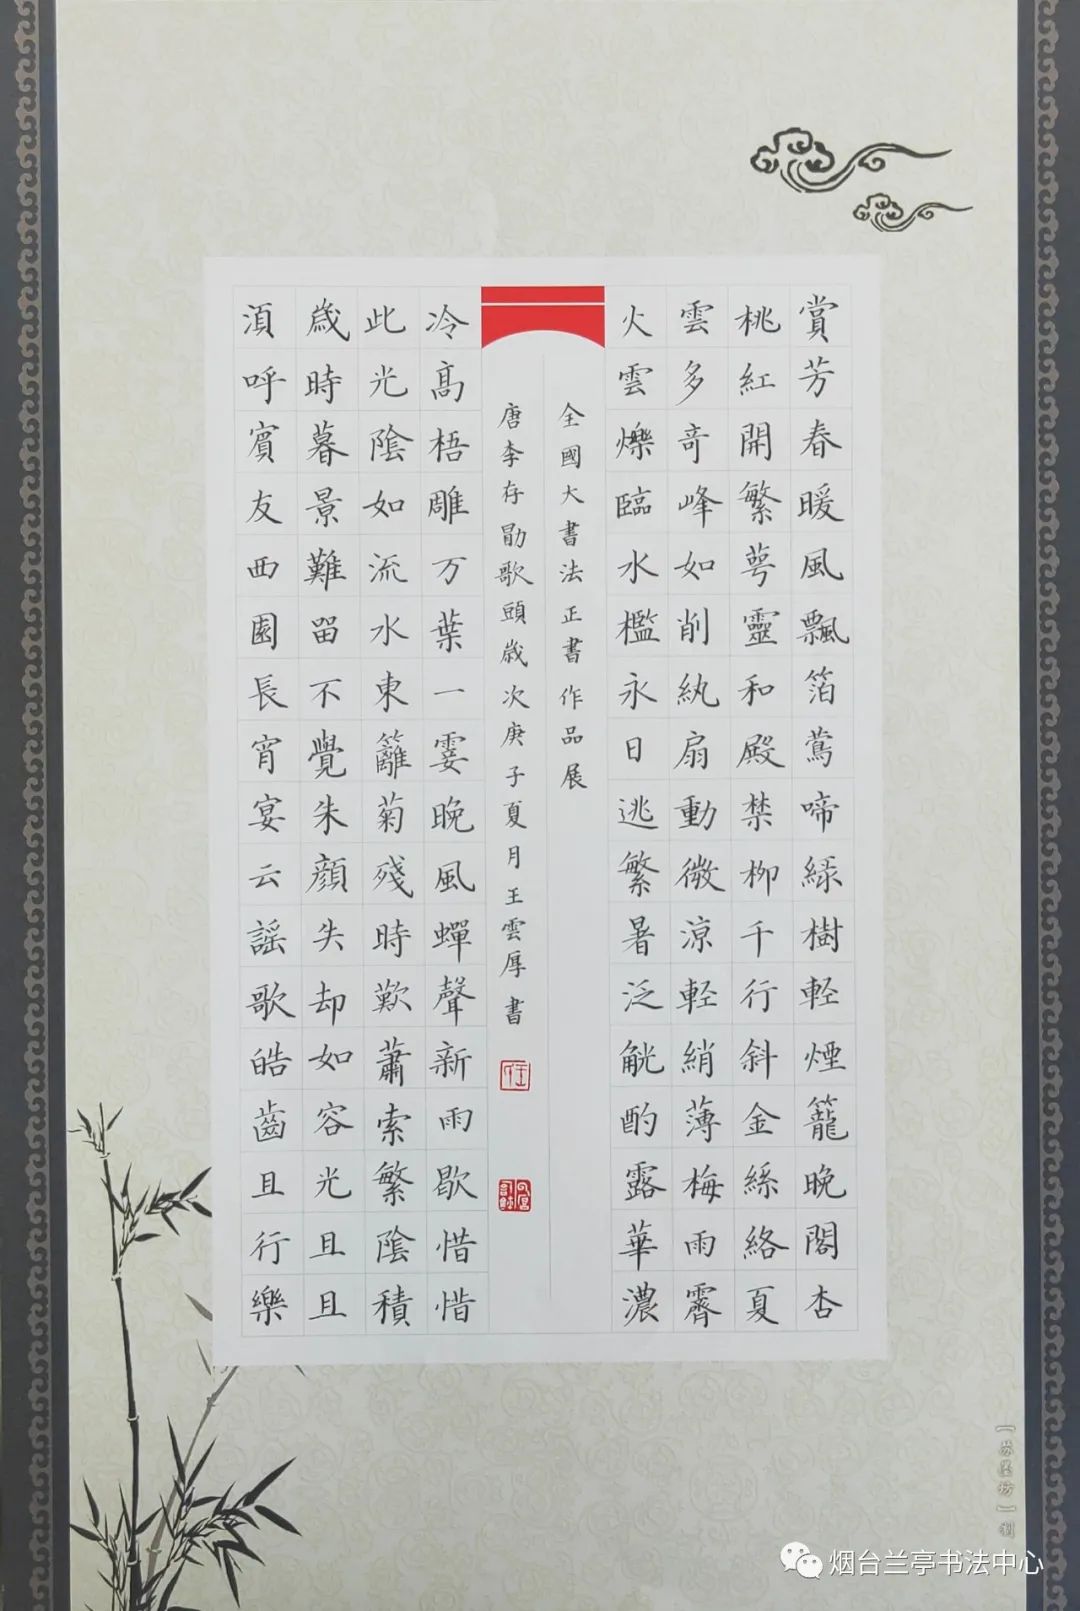 賞芳春暖風飄箔鶯啼綠樹輕煙籠晚閣杏
桃紅開繁萼靈和殿禁柳千行斜金絲絡夏
雲多奇峰如削紈扇動微涼輕綃薄梅雨霽
火雲爍臨水檻永日逃繁暑泛觥酌露華濃
全國大書法正書作品展
唐李存勖歌頭歲次庚子夏月王雲厚書
冷高梧雕万葉一霎晚風蟬聲新雨歇惜惜
此光陰如流水東籬菊殘時歎蕭索繁陰積
歲時暮景難留不覺朱顏失却如容光且且
須呼賓友西園長宵宴云謠歌皓齒且行樂
【苏墨坊】制
烟台兰亭书法中心